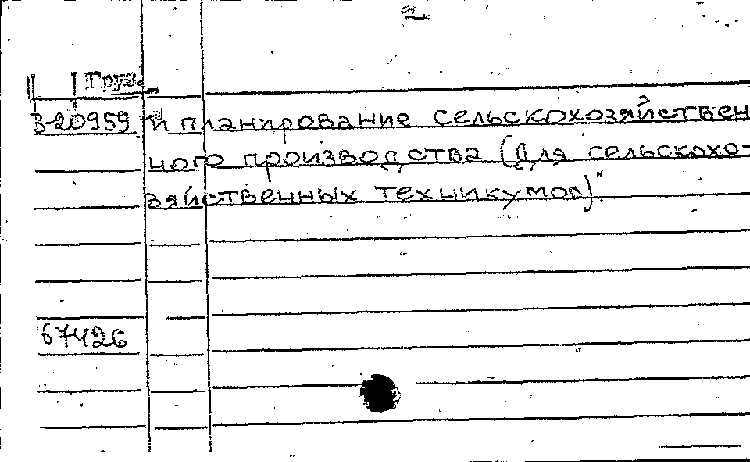 2
Груз.
3-20959 и планирование сельскохозяйствен
ного производства (для сельскохо-
зяйственных техникумов)"
67426